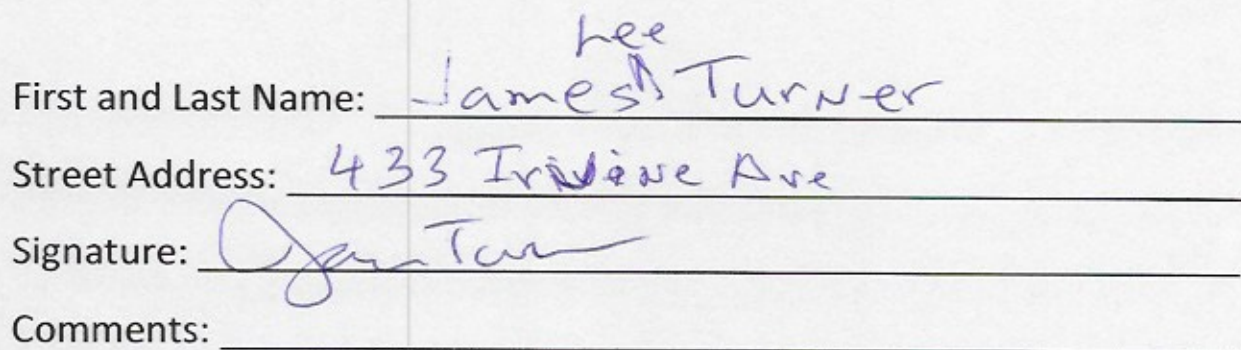 First and Last Name: James Lee Turner
Street Address: 433 Irvine Ave
Signature: James Turner
Comments: